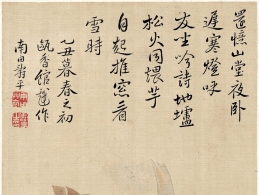 置憶山堂夜卧
遲寒燈呼
友坐吟詩地壚
松火同煨芋
自起推窓看
雪時
乙丑暮春之初
甌香館造作
南田壽平